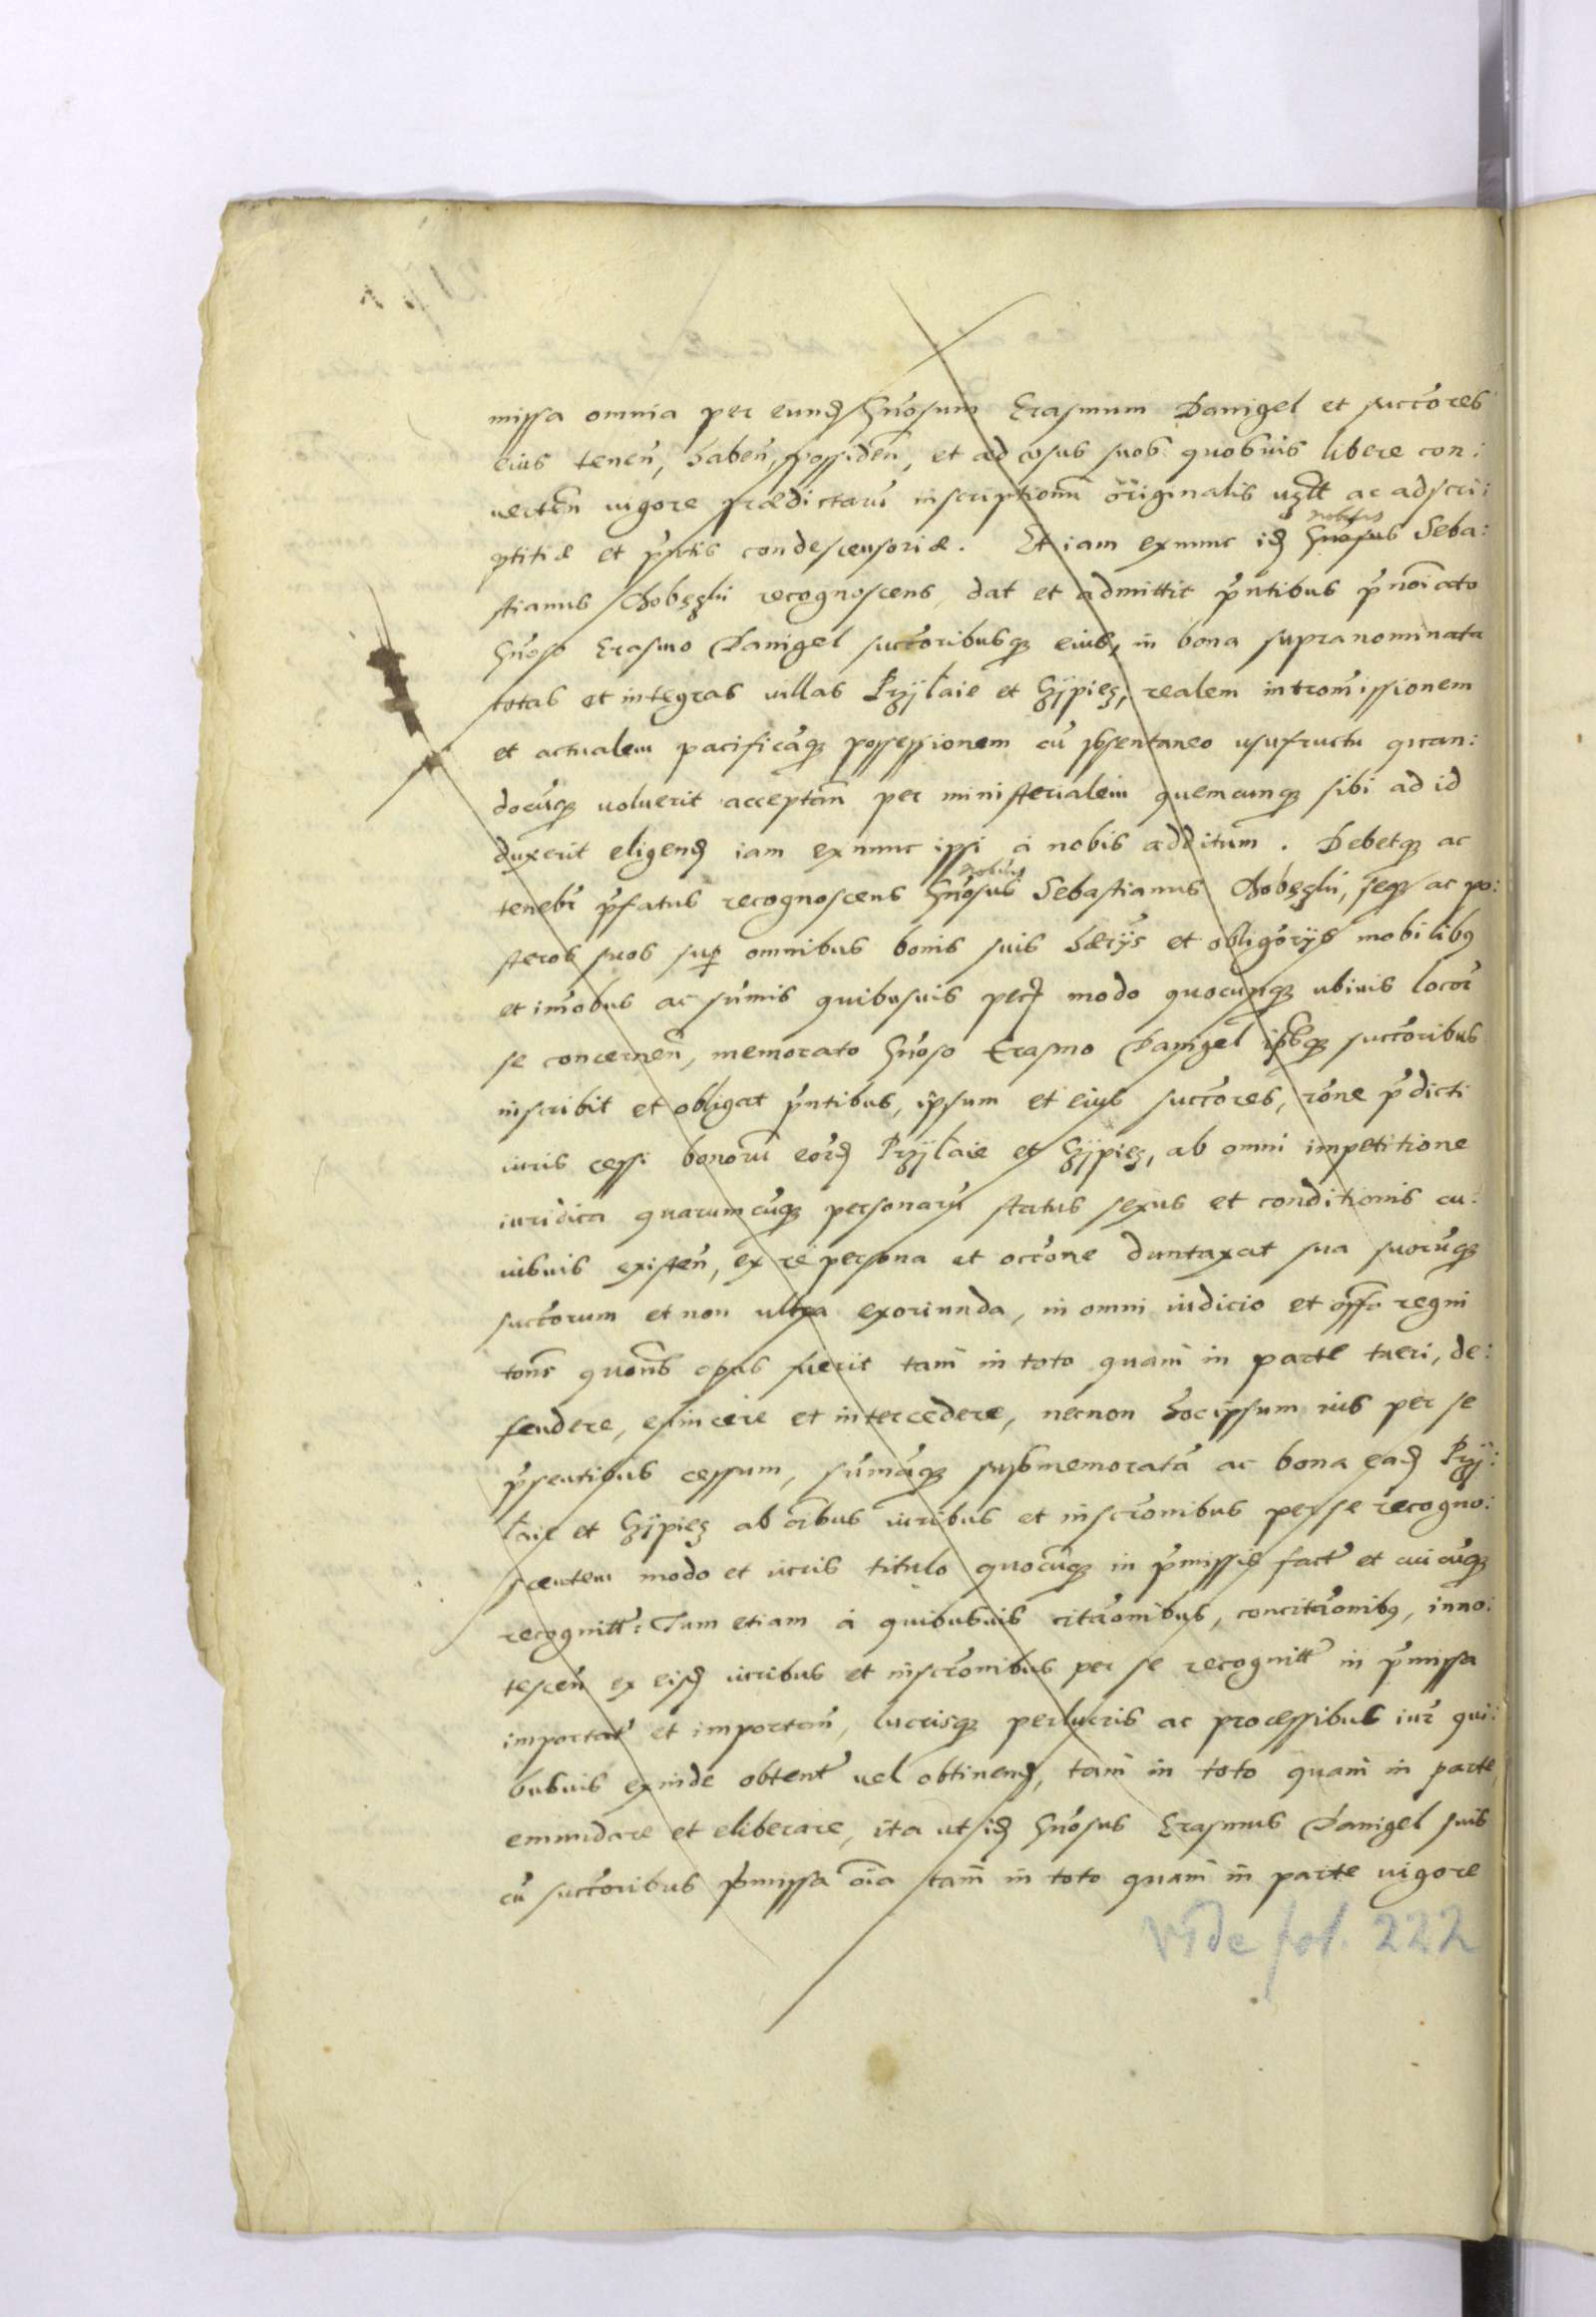 missa omnia per eund Gn̄osum Erasmum Danigel et succ̄ores
eius tenen̄, haben̄, possiden̄, et ad usus suos quosvis libere con:
verten̄ vigore prædictarū inscriptionū originalis ac adscri:
ptitiæ et pn̄tis condescensoriæ. Et iam exnunc id nobilis Gnosus Seba:
stianus recognoscens, dat et admittit pn̄tibus pn̄oiato
Gn̄oso Erasmo Danigel succ̄oribusq eius, in bona supranominata
totas et integras villas Przÿłaie et realem intromissionem
et actualem pacificāq possessionem cū usufructu quan:
docūq voluerit acceptan̄ per ministerialem quemcumq sibi ad id
duxerit eligend iam exnunc ipsi à nobis additum. Debetq ac
tenebr̄ pfatus recognoscens nobilis Gn̄osus Sebastianus seq ac po:
steros suos sup omnibus bonis suis hær̄ijs et obliḡorijs mobilibq
et im̄obus ac sūmis quibusvis modo quocunq ubivis locor̄
se concernen̄, memorato Gn̄oso Erasmo Danigel succ̄oribus
inscribit et obligat pn̄tibus, ipsum et eius succ̄ores, r̄one pdicti
iuris cessi bonorū eord Przÿłaie et ab omni impetitione
iuridica quarumcūq personarū status sexus et conditionis cu:
iusvis existen̄, ex re persona et occ̄one duntaxat sua suorūq
succ̄orum et non ultra exoriunda, in omni iudicio et off̄o regni
opus fuerit tam in toto quam in parte tueri, de:
fendere, evincere et intercedere, necnon hoc ipsum ius per se
psentibus cessum, sūmāq memoratā ac bona ead Przÿ:
łaie et ab oībus iuribus et inscr̄onibus per se recogno:
scentem modo et iuris titulo quocūq in pmissis fact̄ et cui cūq
recognitt: Tum etiam à quibusvis cit̄aonibus, concit̄aonibq, inno:
tescen̄ ex eisd iuribus et inscr̄onibus per se recognitt̄ in pmissa
importat̄ et importan̄, lucrisq perlucris ac processibus iur̄ qui:
busvis exinde obtent̄ vel obtinend, tam in toto quam in parte
emundare et eliberare, ita ut id Gn̄osus Erasmus Danigel suis
cū succ̄oribus pmissa oīa tam in toto quam in parte vigore
Vide fol. 222